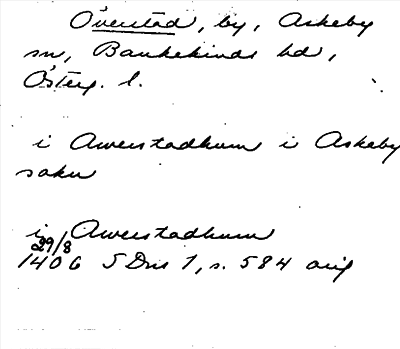 Överstad, by, Askeby
sn, Bankekinds hd,
Österg. l.
i Awerstadhum i Askeby
sokn
i Awerstadhum
29/8
1406 SDns 1, s. 584 orig